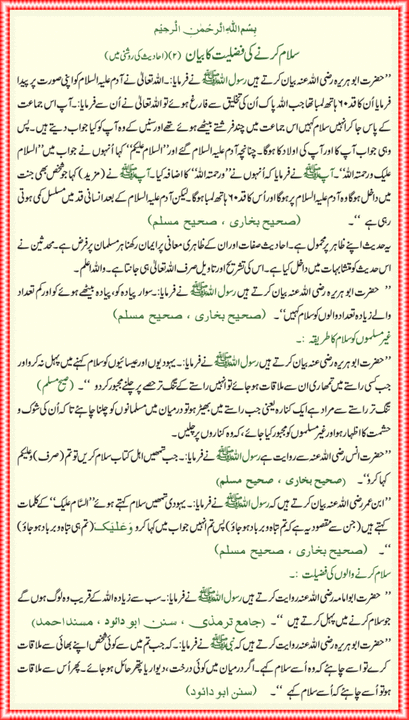 بِسْمِ اللّٰهِ الرَّحْمٰنِ الرَّحِيْمِ
سلام کرنے کی فضیلت کا بیان (۲) (احادیث کی روشنی میں)
’’حضرت ابو ہریرہ رضی اللہ عنہ بیان کرتے ہیں رسول اللہ ﷺ نے فرمایا:۔ اللہ تعالیٰ نے آدم علیہ السلام کو اپنی صورت پر پیدا
فرمایا اُن کا قد ٦٠ ہاتھ لمبا تھا جب اللہ پاک اُن کی تخلیق سے فارغ ہوئے تو اللہ تعالیٰ نے اُن سے فرمایا:۔ آپ اس جماعت
کے پاس جا کر انہیں سلام کہیں اس جماعت میں چند فرشتے بیٹھے ہوئے تھے اور سنیں کے وہ آپ کو کیا جواب دیتے ہیں۔ پس
وہی جواب آپ کا اور آپ کی اولاد کا ہوگا۔ چنانچہ آدم علیہ السلام گئے اور ’’السلام علیکم‘‘ کہا اُنہوں نے جواب میں ’’السلام
علیک ورحمتہ اللہ‘‘۔ آپ ﷺ نے فرمایا کہ اُنہوں نے ’’ورحمتہ اللہ‘‘ کا اضافہ کیا۔ آپ ﷺ نے (مزید) کہا جو شخص بھی جنت
میں داخل ہوگا وہ آدم علیہ السلام پر ہوگا اور اُس کا قد ٦٠ ہاتھ لمبا ہوگا۔ لیکن آدم علیہ السلام کے بعد انسانی قد میں مسلسل کمی ہوتی
رہی ہے ‘‘۔ (صحیح بخاری ، صحیح مسلم)
یہ حدیث اپنے ظاہر پر محمول ہے۔ احادیث صفات اور ان کے ظاہری معانی پر ایمان رکھنا ہر مسلمان پر فرض ہے۔ محدثین نے
اس حدیث کو متشابہات میں داخل کیا ہے۔ اس کی تشریح اور تاویل صرف اللہ تعالیٰ ہی جانتا ہے۔ واللہ اعلم۔
’’ حضرت ابو ہریرہ رضی اللہ عنہ بیان کرتے ہیں رسول اللہ ﷺ نے فرمایا:۔ سوار پیادہ کو، پیادہ بیٹھے ہوئے کو اور کم تعداد
والے زیادہ تعداد والوں کو سلام کہیں‘‘۔ (صحیح بخاری ، صحیح مسلم)
غیر مسلموں کو سلام کا طریقہ :۔
’’حضرت ابو ہریرہ رضی اللہ عنہ بیان کرتے ہیں رسول اللہ ﷺ نے فرمایا:۔ یہودیوں اور عیسائیوں کو سلام کہنے میں پہل نہ کرو اور
جب کسی راستے میں تمھاری ان سے ملاقات ہو جائے تو انہیں راستے کے تنگ تر حصے پر چلنے مجبور کر دو ‘‘۔ (صحیح مسلم)
تنگ تر راستے سے مراد ہے ایک کنارہ یعنی جب راستے میں بھیڑ ہو تو درمیان میں مسلمانوں کو چلنا چاہئے تا کہ اُن کی شوک و
حشمت کا اظہار ہو اور غیر مسلموں کو مجبور کیا جائے، کہ وہ کناروں پر چلیں۔
’’حضرت انس رضی اللہ عنہ سے روایت ہے رسول اللہ ﷺ نے فرمایا:۔ جب تمھیں اہل کتاب سلام کریں تو تم (صرف) وعلیکم
کہا کرو‘‘۔ (صحیح بخاری ، صحیح مسلم)
’’ابن عمر رضی اللہ عنہ بیان کرتے ہیں کہ رسول اللہ ﷺ نے فرمایا:۔ یہودی تمھیں سلام کہتے ہوئے ’’السَّام علیک‘‘ کے کلمات
کہتے ہیں (جن سے مقصود یہ ہے کہ تم تباہ و برباد ہو جاؤ) پس تم انہیں جواب میں کہا کرو وَعَلَیْکَ (تم ہی تباہ و برباد ہو جاؤ)
‘‘۔ (صحیح بخاری ، صحیح مسلم)
سلام کرنے والوں کی فضیلت :۔
’’حضرت ابو امامہ رضی اللہ عنہ روایت کرتے ہیں رسول اللہ ﷺ نے فرمایا:۔ سب سے زیادہ اللہ کے قریب وہ لوگ ہوں گے
جو سلام کرنے میں پہل کرتے ہیں ‘‘۔ (جامع ترمذی ، سنن ابو دائود ، مسند احمد)
’’حضرت ابو ہریرہ رضی اللہ عنہ روایت کرتے ہیں کہ نبی ﷺ نے فرمایا:۔ کہ جب تم میں سے کوئی شخص اپنے بھائی سے ملاقات
کرے تو اسے چاہئے کہ وہ اُسے سلام کہے۔ اگر درمیان میں کوئی درخت، دیوار یا پتھر حائل ہو جائے۔ پھر اُس سے ملاقات
ہو تو اُسے چاہئے کہ اُسے سلام کہے ‘‘۔ (سنن ابو دائود)